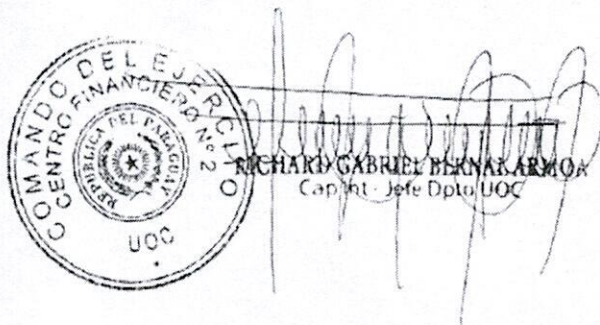 COMANDO DEL EJERCITO
CENTRO FINANCIERO Nº 2
REPUBLICA DEL PARAGUAY
UOC
RICHARD GABRIEL BERNAL ARMOA
Cap Int - Jefe Dpto UOC